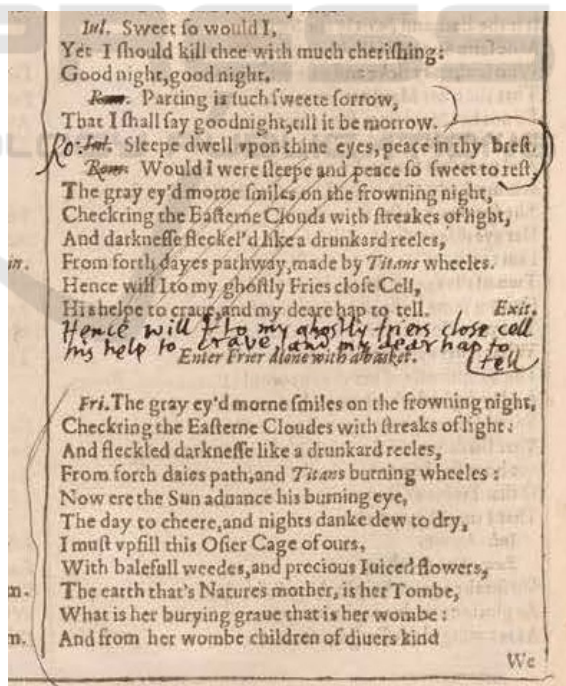 Iul. Sweet so would I,
Yet I should kill thee with much cherishing:
Good night,good night.
Rom. Parting is such sweete sorrow,
That I shall say goodnight,till it be morrow.
Ro: Iul. Sleepe dwell vpon thine eyes, peace in thy brest.
Rom. Would I were sleepe and peace so sweet to rest,
The gray ey'd morne smiles on the frowning night,
Checkring the Easterne Clouds with streakes of light,
And darknesse fleckel'd like a drunkard reeles,
in. From forth dayes pathway,made by Titans wheeles.
Hence will I to my ghostly Fries close Cell,
His helpe to craue,and my deare hap to tell. Exit.
Hence will I to my ghostly friers close cell
his help to crave, and my dear hap to
tell
Enter Frier alone with a basket.
Fri.The gray ey'd morne smiles on the frowning night,
Checkring the Easterne Cloudes with streaks of light:
And fleckled darknesse like a drunkard reeles,
From forth daies path,and Titans burning wheeles:
Now ere the Sun aduance his burning eye,
The day to cheere,and nights danke dew to dry,
I must vpfill this Osier Cage of ours,
With balefull weedes,and precious Iuiced flowers,
n. The earth that's Natures mother, is her Tombe,
What is her burying graue that is her wombe:
m. And from her wombe children of diuers kind
We